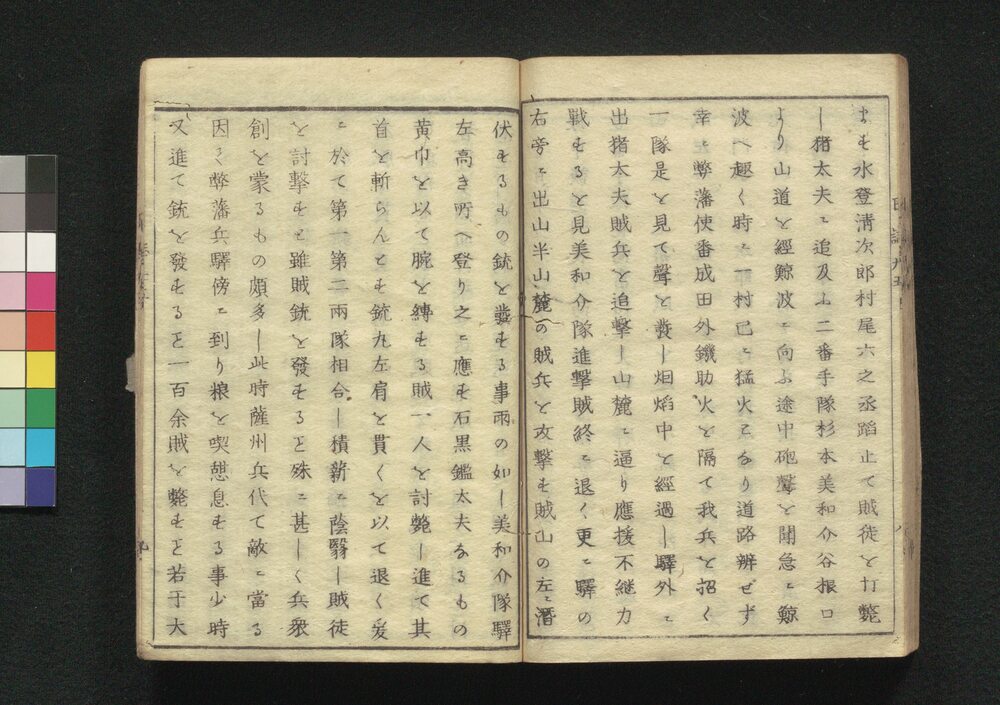 よも水登清次郎村尾六之丞蹈止て賊徒と打斃
し猪太夫ニ追及ふ二番手隊杉本美和介谷根口
より山道を經鯨波ニ向ふ途中砲聲を聞急ニ鯨
波へ趣く時ニ一村已ニ猛火となり道路辨ぜず
幸ニ弊藩使番成田外鐵助火を隔て我兵を招く
一隊是を見て聲を發し烟焰中を經過し驛外ニ
出猪太夫賊兵を追擊し山麓ニ逼り應援不継力
戦もるを見美和介隊進擊賊終ニ退く更ニ驛の
右旁ニ出山半山麓の賊兵を攻擊も賊山の左ニ潛
伏もるもの銃を發もる事雨の如し美和介隊驛
左高き所へ登り之ニ應も石黒鑑太夫なるもの
黄巾を以て腕を縛もる賊一人を討斃し進て其
首を斬らんとも銃丸左肩を貫くを以て退く爰
ニ於て第一第二兩隊相合し積薪ニ蔭翳し賊徒
を討擊もと雖賊銃を發もると殊ニ甚しく兵衆
創を蒙るもの頗多し此時薩州兵代て敵ニ當る
因て弊藩兵驛傍ニ到り粮を喫憩息もる事少時
又進て銃を發もると一百余賊を斃もと若干大